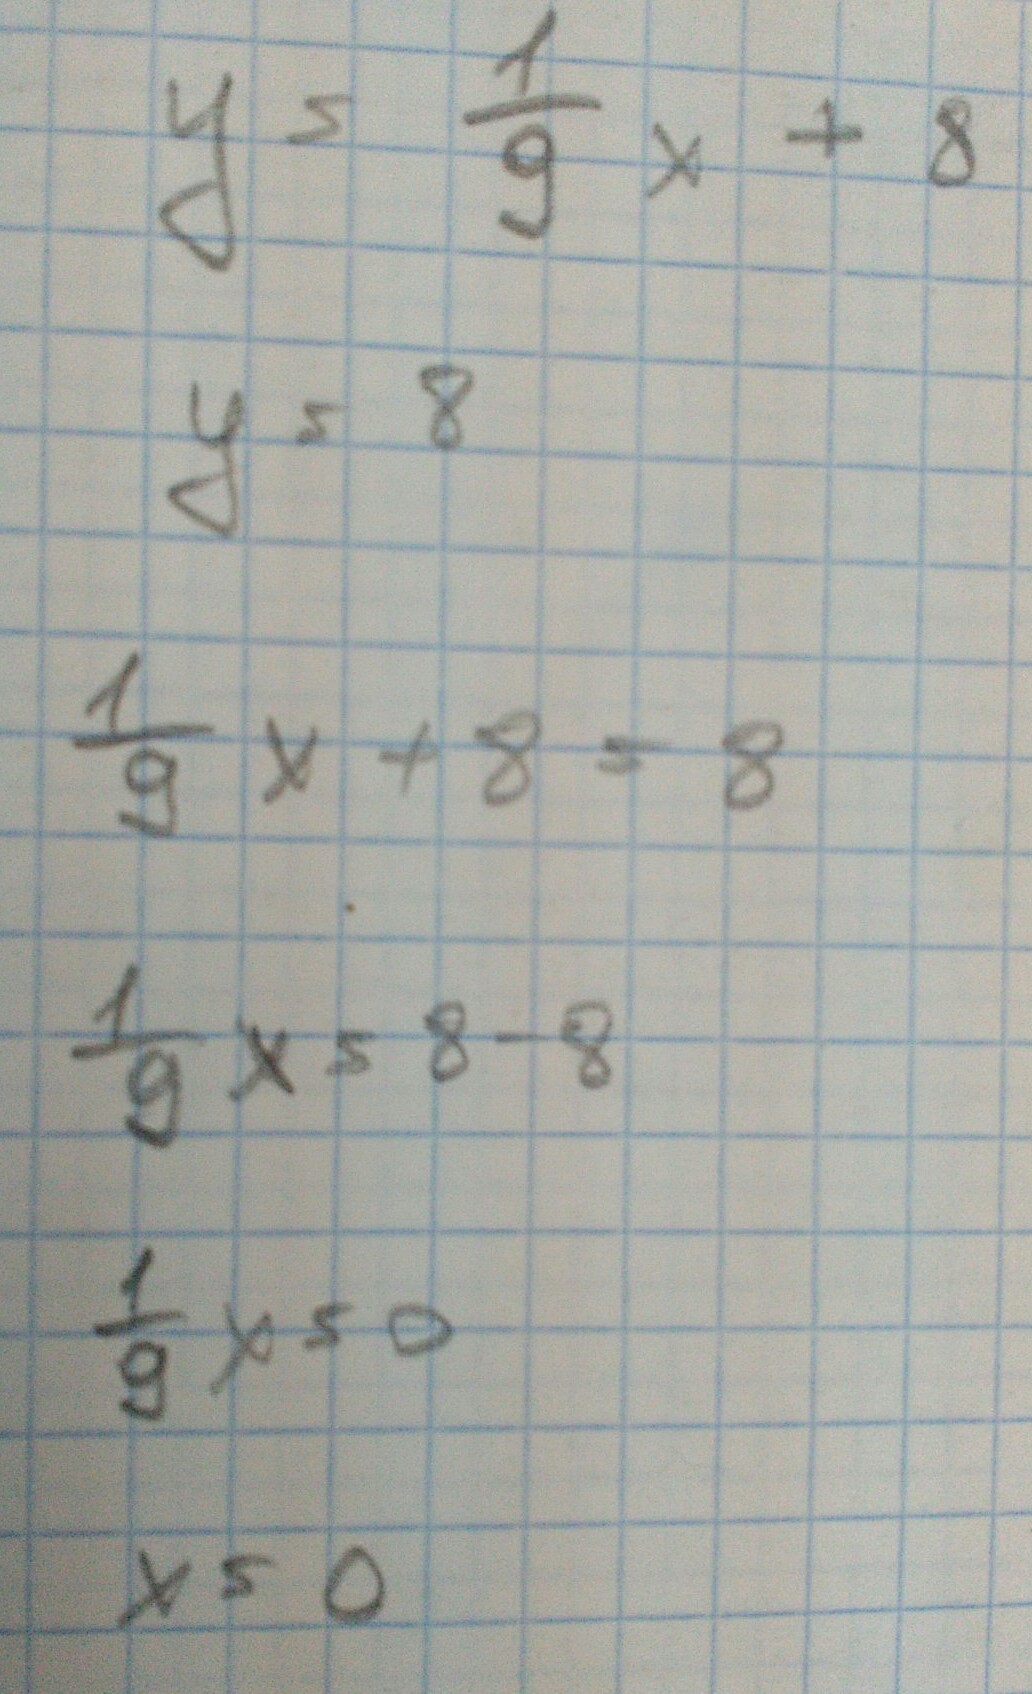 y = 1/9 x + 8
y = 8
1/9 x + 8 = 8
1/9 x = 8 - 8
1/9 x = 0
x = 0